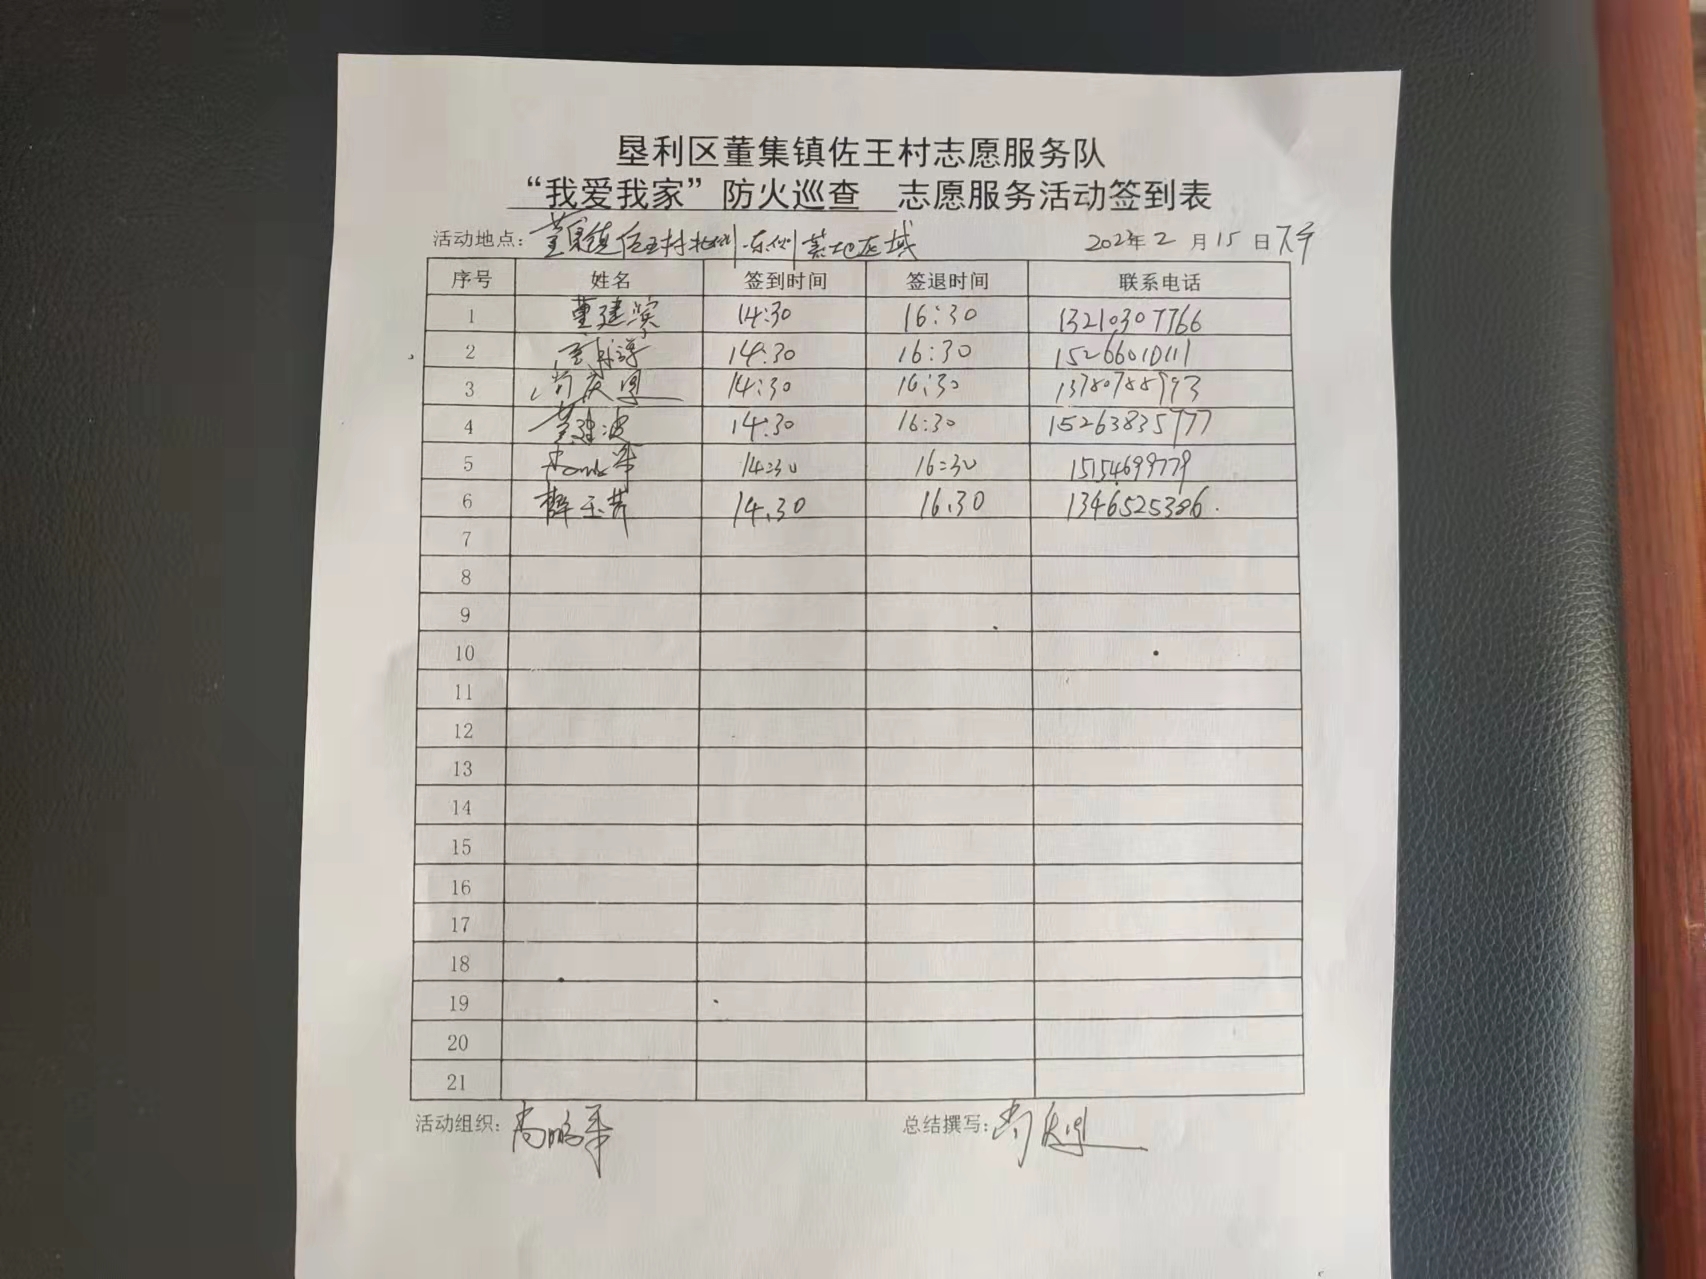 垦利区董集镇佐王村志愿服务队
“我爱我家”防火巡查 志愿服务活动签到表
活动地点：董集镇佐王村北侧、东侧墓地区域 2023年2月15日下午
序号 姓名 签到时间 签退时间 联系电话
1 董建滨 14:30 16:30 13210307766
2 14:30 16:30 15266010111
3 尚庆恩 14:30 16:30 13780788993
4 董建波 14:30 16:30 15263835777
5 14:30 16:30 15154699779
6 薛玉芹 14.30 16.30 1346525386.
7
8
9
10
11
12
13
14
15
16
17
18
19
20
21
活动组织：尚鹏军 总结撰写：尚庆恩